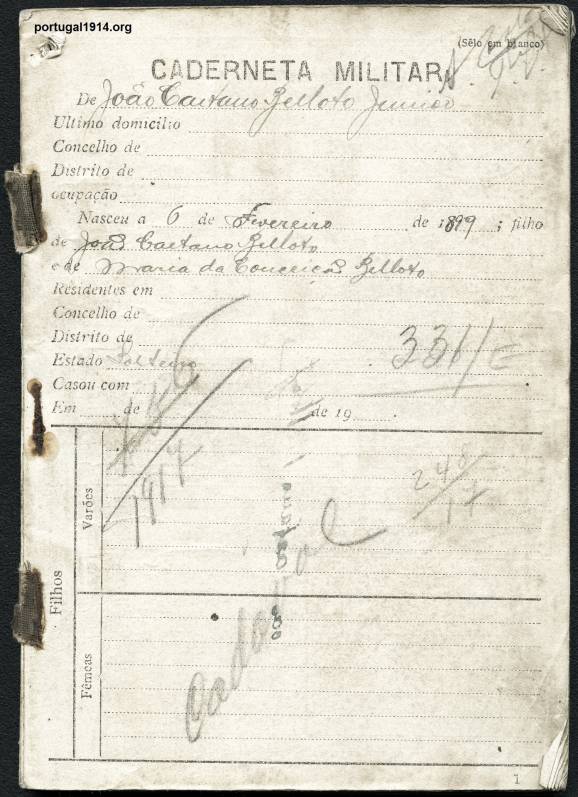 portugal1914.org
(Sêlo em branco)
CADERNETA MILITAR
De João Caetano Belloto Junior
Ultimo domicilio
Concelho de
Distrito de
ocupação
Nasceu a 6 de Fevereiro de 1899; filho
de João Caetano Belloto
e de Maria da Conceição Belloto
Residentes em
Concelho de
Distrito de
Estado Solteiro
Casou com
331/C
Em de de 19
1917
248/17
Filhos
Varões
Fêmeas
Cadaval
1